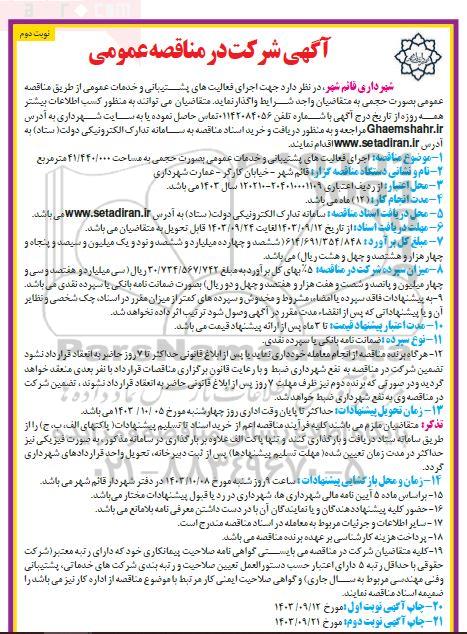 نوبت دوم
آگهی شرکت در مناقصه عمومی
شهرداری قائم شهر، در نظر دارد جهت اجرای فعالیت های پشتیبانی و خدمات عمومی از طریق مناقصه
عمومی بصورت حجمی به متقاضیان واجد شرایط واگذار نماید. متقاضیان می توانند به منظور کسب اطلاعات بیشتر
همه روزه از تاریخ درج آگهی با شماره تلفن ۰۱۱۴۲۰۸۴۰۵۶ تماس حاصل نموده یا به سایت شهرداری به آدرس
Ghaemshahr.ir مراجعه و به منظور دریافت و خرید اسناد مناقصه به سامانه تدارک الکترونیکی دولت( ستاد) به
آدرس www.setadiran.ir اقدام نمایند.
۱-موضوع مناقصه: اجرای فعالیت های پشتیبانی و خدمات عمومی بصورت حجمی به مساحت ۴۱/۴۴۰/۰۰۰ مترمربع
۲-نام و نشانی دستگاه مناقصه گزار: قائم شهر - خیابان کارگر - عمارت شهرداری
۳-محل اعتبار: از ردیف اعتباری ۲۰۴۰۱۰۰۰۱۱۰۹-۱۲۰۲۱۰ سال ۱۴۰۳ می باشد.
۴-مدت انجام کار: (۱۲) ماه می باشد.
۵-محل دریافت اسناد مناقصه: سامانه تدارک الکترونیکی دولت( ستاد) به آدرس www.setadiran.ir می باشد.
۶-مهلت دریافت اسناد: از تاریخ ۱۴۰۳/۰۹/۱۲ لغایت ۱۴۰۳/۰۹/۲۴ قابل تحویل به متقاضیان می باشد.
۷-مبلغ کل برآورد: ۶۱۴/۶۹۱/۳۵۴/۸۴۸ (ششصد و چهارده میلیارد و ششصد و نود و یک میلیون و سیصد و پنجاه و
چهار هزار و هشتصد و چهل و هشت ریال) می باشد.
۸-میزان سپرده شرکت در مناقصه: ۵٪ بهای کل برآورد به مبلغ ۳۰/۷۳۴/۵۶۷/۷۴۲ ریال (سی میلیارد و هفتصد و سی و
چهار میلیون و پانصد و شصت و هفت هزار و هفتصد و چهل و دو ریال) بصورت ضمانت نامه بانکی یا سپرده نقدی می باشد.
۹-به پیشنهادات فاقد سپرده یا امضاء، مشروط و مخدوش و سپرده های کمتر از میزان مقرر در اسناد، چک شخصی و نظایر
آن و یا پیشنهاداتی که پس از انقضاء مدت مقرر در آگهی وصول شود ترتیب اثر داده نخواهد شد.
۱۰-مدت اعتبار پیشنهاد قیمت: تا ۳ ماه پس از ارائه پیشنهاد قیمت می باشد.
۱۱-نوع سپرده: ضمانت نامه بانکی یا سپرده نقدی.
۱۲-هرگاه برنده مناقصه از انجام معامله خودداری نماید یا پس از ابلاغ قانونی حداکثر تا ۷ روز حاضر به انعقاد قرارداد نشود
تضمین شرکت در مناقصه به نفع شهرداری ضبط و با رعایت قانون برگزاری مناقصات قرارداد با نفر بعدی منعقد خواهد
گردید و در صورتی که برنده دوم نیز ظرف مهلت ۷ روز پس از ابلاغ قانونی حاضر به انعقاد قرارداد نشوند، تضمین شرکت
در مناقصه وی به نفع شهرداری ضبط خواهد شد.
۱۳-زمان تحویل پیشنهادات: حداکثر تا پایان وقت اداری روز چهارشنبه مورخ ۱۴۰۳/۱۰/۰۵ می باشد.
تذکر: متقاضیان ملزم می باشند کلیه فرآیند مناقصه اعم از خرید اسناد تا تسلیم پیشنهادات( پاکتهای الف، ب، ج) را از
طریق سامانه ستاد دریافت و بارگذاری کنند و تنها پاکت الف علاوه بر بارگذاری در سامانه مذکور، به صورت فیزیکی نیز
حداکثر در مدت زمان تعیین شده( مهلت تسلیم پیشنهادها) پس از ثبت دبیرخانه، تحویل واحد قراردادهای شهرداری
گردد.
۱۴-زمان و محل بازگشایی پیشنهادات: ساعت ۹ روز شنبه مورخ ۱۴۰۳/۱۰/۰۸ در دفتر شهردار قائم شهر می باشد.
۱۵-براساس ماده ۵ آیین نامه مالی شهرداری ها، شهرداری در رد یا قبول پیشنهادات مختار می باشد.
۱۶-حضور کلیه پیشنهاددهندگان و یا نمایندگان آن با در دست داشتن معرفی نامه بلامانع می باشد.
۱۷-سایر اطلاعات و جزئیات مربوط به معامله در اسناد مناقصه مندرج است.
۱۸-پرداخت هزینه کارشناسی بر عهده برنده مناقصه می باشد.
۱۹-کلیه متقاضیان شرکت در مناقصه می بایستی گواهی نامه صلاحیت پیمانکاری خود که دارای رتبه معتبر (شرکت
حقوقی با حداقل رتبه ۵ دارای اعتبار حسب دستورالعمل تعیین صلاحیت و رتبه بندی شرکت های خدماتی، پشتیبانی
وفنی مهندسی مربوط به سال جاری) و گواهی صلاحیت ایمنی کار مرتبط با موضوع مناقصه از اداره کار نیز می باشد را
ضمیمه اسناد مناقصه نمایند.
۲۰-چاپ آگهی نوبت اول: مورخ ۱۴۰۳/۰۹/۱۲
۲۱-چاپ آگهی نوبت دوم: مورخ ۱۴۰۳/۰۹/۲۱